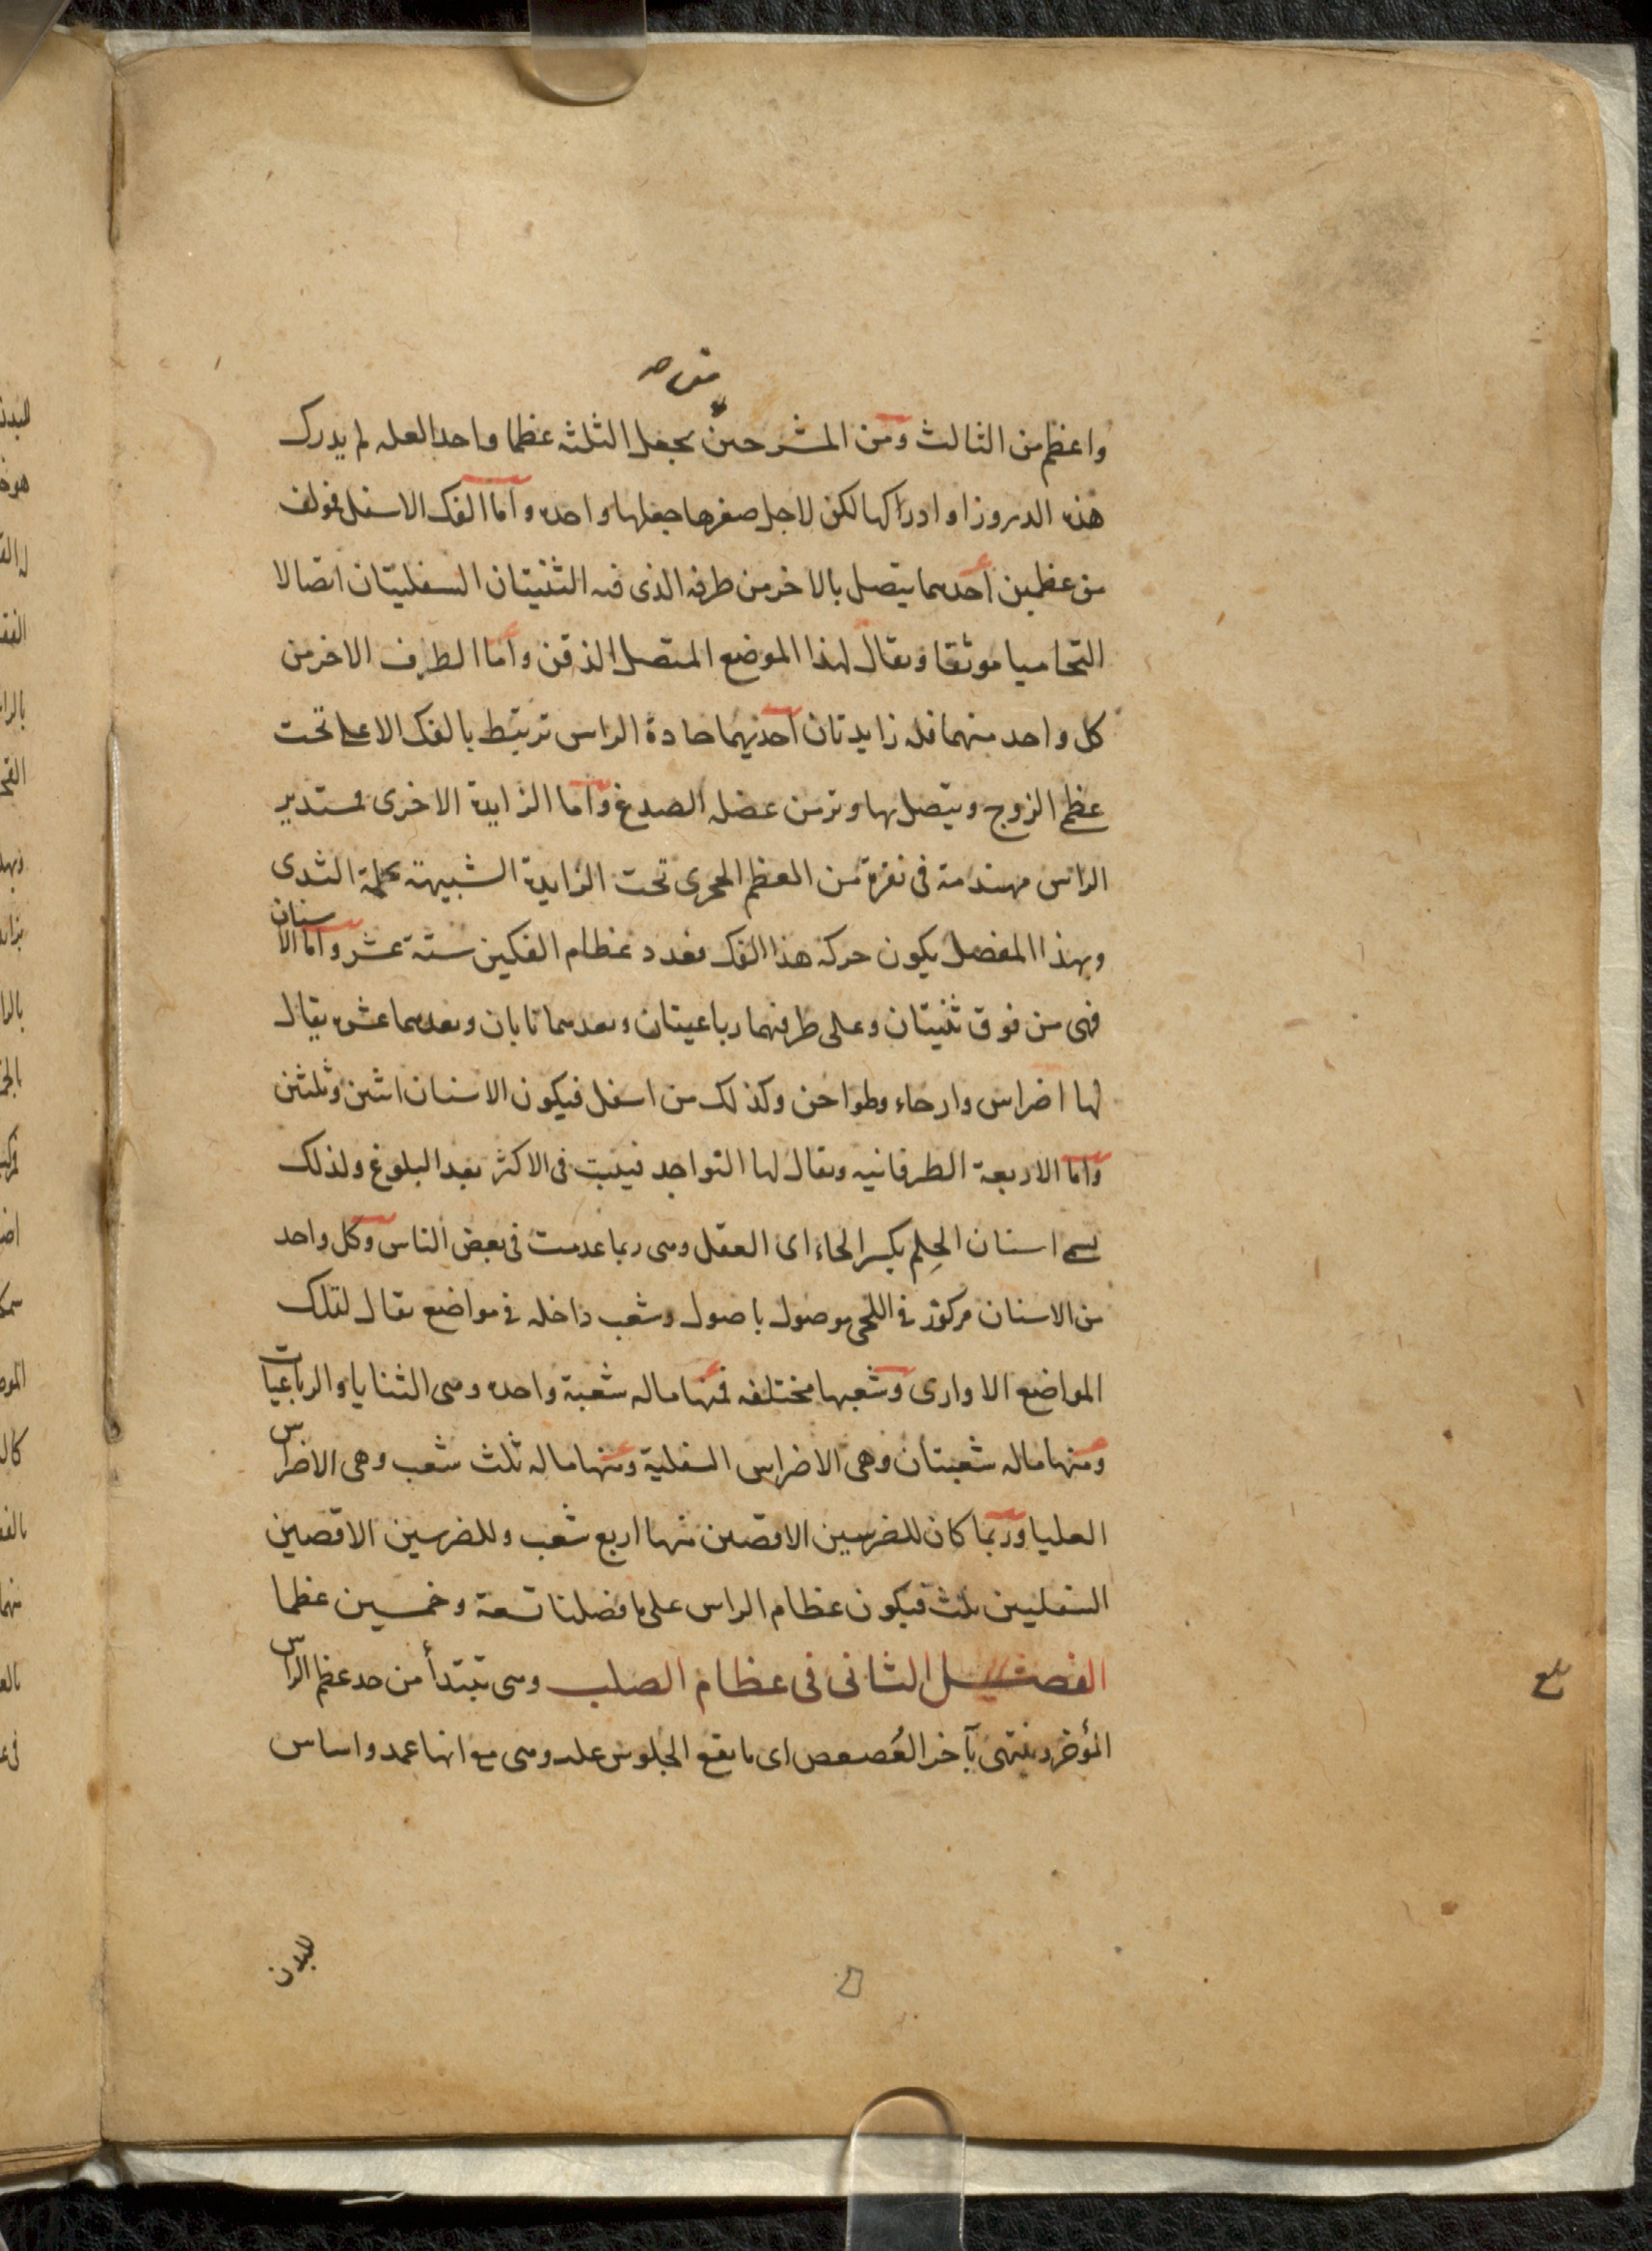 من صح
واعظم من الثالث ومن المشرحين يجعل الثلثه عظما واحدا لعله لم يدرك
هذه الدروز او ادراكها لكن لاجل صغرها جعلها واحده واما الفك الاسفل فمؤلف
من عظمين احدهما يتصل بالاخر من طرفه الذى فيه الثنيتان السفليتان اتصالا
التحاميا موثقا ويقال لهذا الموضع المتصل الذقن واما الطرف الاخر من
كل واحد منهما فله زايدتان احديهما حادة الراس ترتبط بالفك الاعلى تحت
عظم الزوج ويتصل بها وتر من عضله الصدغ واما الزايدة الاخرى فمستدير
الراس مهندمة فى نقرة من العظم الحجرى تحت الزايدة الشبيهة بحلمة الثدى
وبهذا المفصل يكون حركة هذا الفك فعدد عظام الفكين ستة عشر واما الاسنان
فهى من فوق ثنيتان وعلى طرفيهما رباعيتان وبعدهما نابان وبعدهما عشره يقال
لها اضراس وارحاء وطواحن وكذلك من اسفل فيكون الاسنان اثنين وثلثين
واما الاربعة الطرفانيه ويقال لها النواجد فينبت فى الاكثر بعد البلوغ ولذلك
يسمى اسنان الحِلم بكسر الحاء اى العقل وهى ربما عدمت فى بعض الناس وكل واحد
من الاسنان مركوز فى اللحى موصول باصول وشعب داخله فى مواضع يقال لتلك
المواضع الاوارى وشعبها مختلفه فمنها ماله شعبة واحده وهى الثنايا والرباعيات
ومنها ماله شعبتان وهى الاضراس السفلية ومنها ماله ثلث شعب وهى الاضراس
العليا وربما كان للضرسين الاقصين منها اربع شعب وللضرسين الاقصين
السفليين ثلث فيكون عظام الراس على ما فصلنا تسعة وخمسين عظما
الفصل الثانى فى عظام الصلب وهى تبتدأ من حد عظم الراس
المؤخر وينتهى بآخر العُصعص اى ما يقع الجلوس عليه وهى مع انها عمد واساس
للبدن